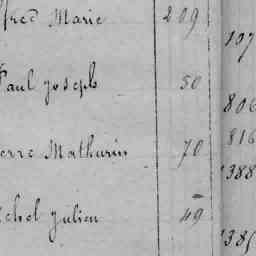 fred Marie 209
107
Paul Joseph 50
806
816
erre Mathurin 70
1388
ichel Julien 49
138